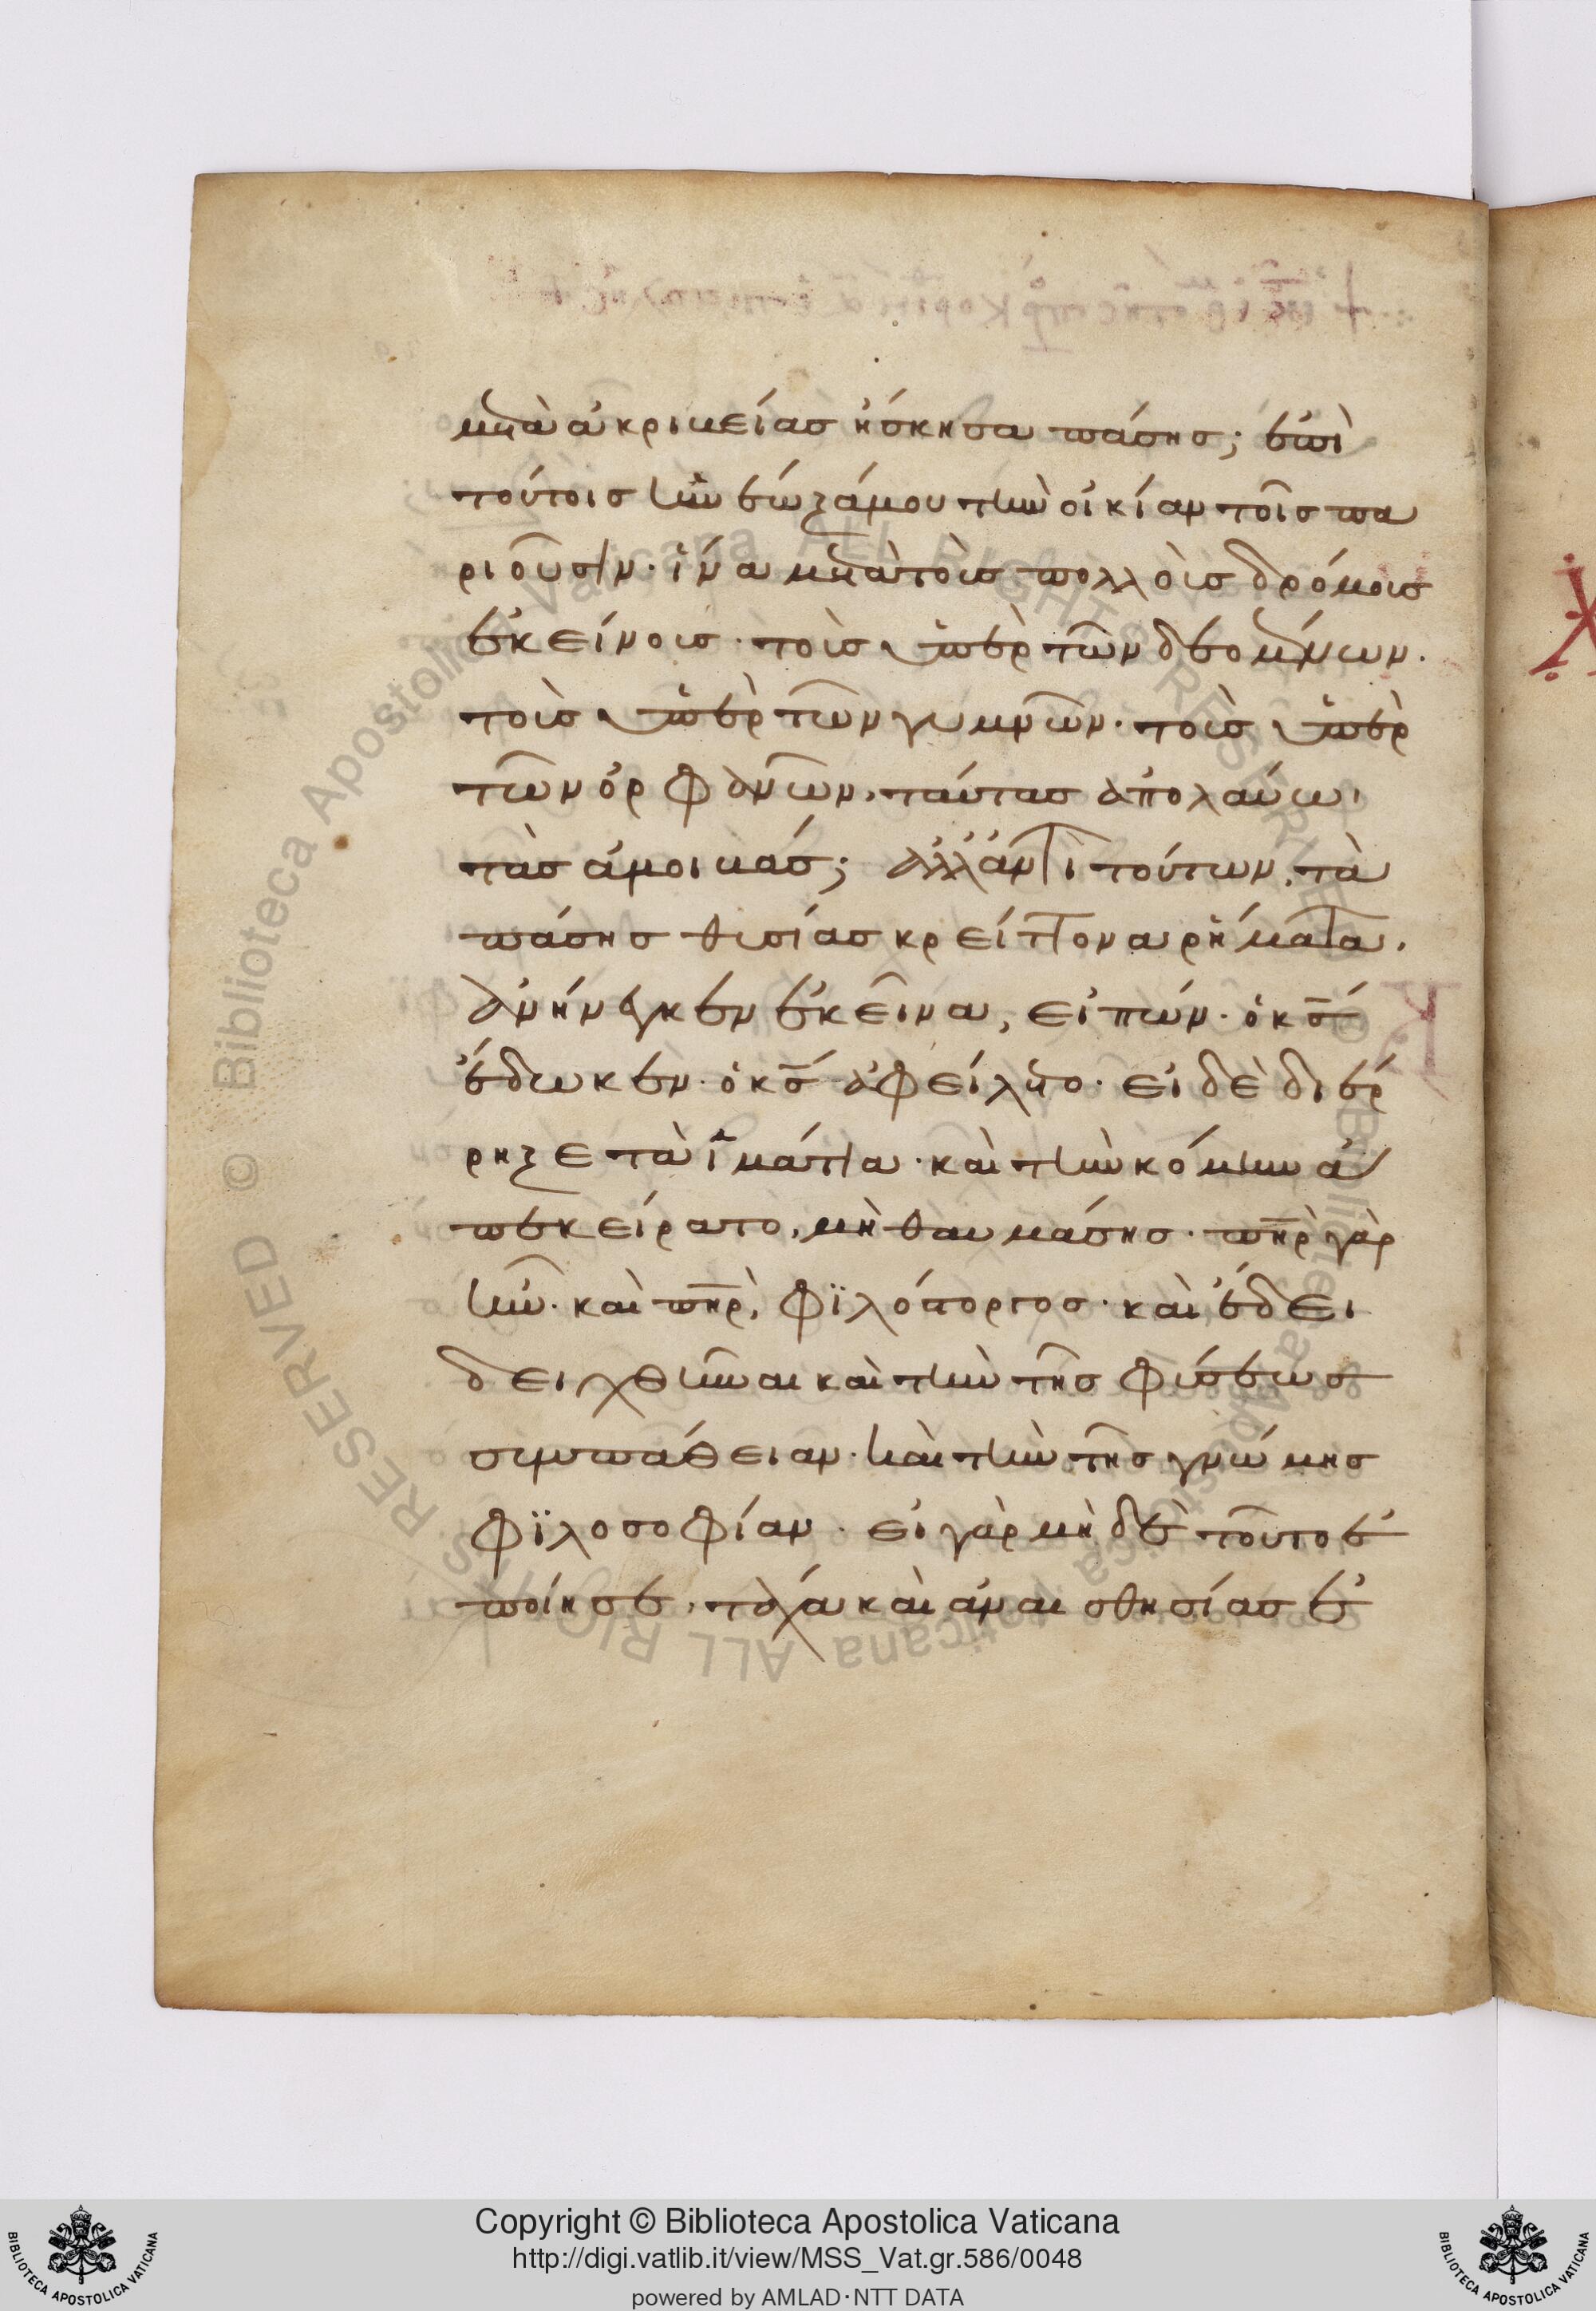 μετὰ ἀκριβείας ἤσκησα πάσης; ἐπὶ
τούτοις ἦν ἐῳξάμου τὴν οἰκίαν τοῖς πα
ριοῦσιν· ἵνα μετὰ τοὺς πολλοὺς δρόμους
ἐκείνους· τοὺς ὑπὲρ τῶν δεομένων·
τοὺς ὑπὲρ τῶν γυμνῶν· τοὺς ὑπὲρ
τῶν ὀρφανῶν, ταύτας ἀπολαύω,
τὰς ἀμοιβάς; ἀλλ' ἀντὶ τούτων, τὰ
πάσης θυσίας κρείττονα ῥήματα,
ἀνήνεγκεν ἐκεῖνα, εἰπών· ὁ κς
ἔδωκεν· ὁ κς ἀφείλετο· εἰ δὲ διέρ
ρηξε τὰ ἱμάτια· καὶ τὴν κόμην ἀ
πεκείρατο, μὴ θαυμάσης· πηρ γὰρ
ἦν· καὶ πηρ, φϊλόστοργος· καὶ ἔδει
δειχθῆναι καὶ τὴν τῆς φύσεως
συμπάθειαν· καὶ τὴν τῆς γνώμης
φϊλοσοφίαν· εἰ γὰρ μὴ δὲ τοῦτο ἐ
ποίησε, τάχα καὶ ἀναισθησίας ἐ
Copyright © Biblioteca Apostolica Vaticana
http://digi.vatlib.it/view/MSS_Vat.gr.586/0048
powered by AMLAD·NTT DATA